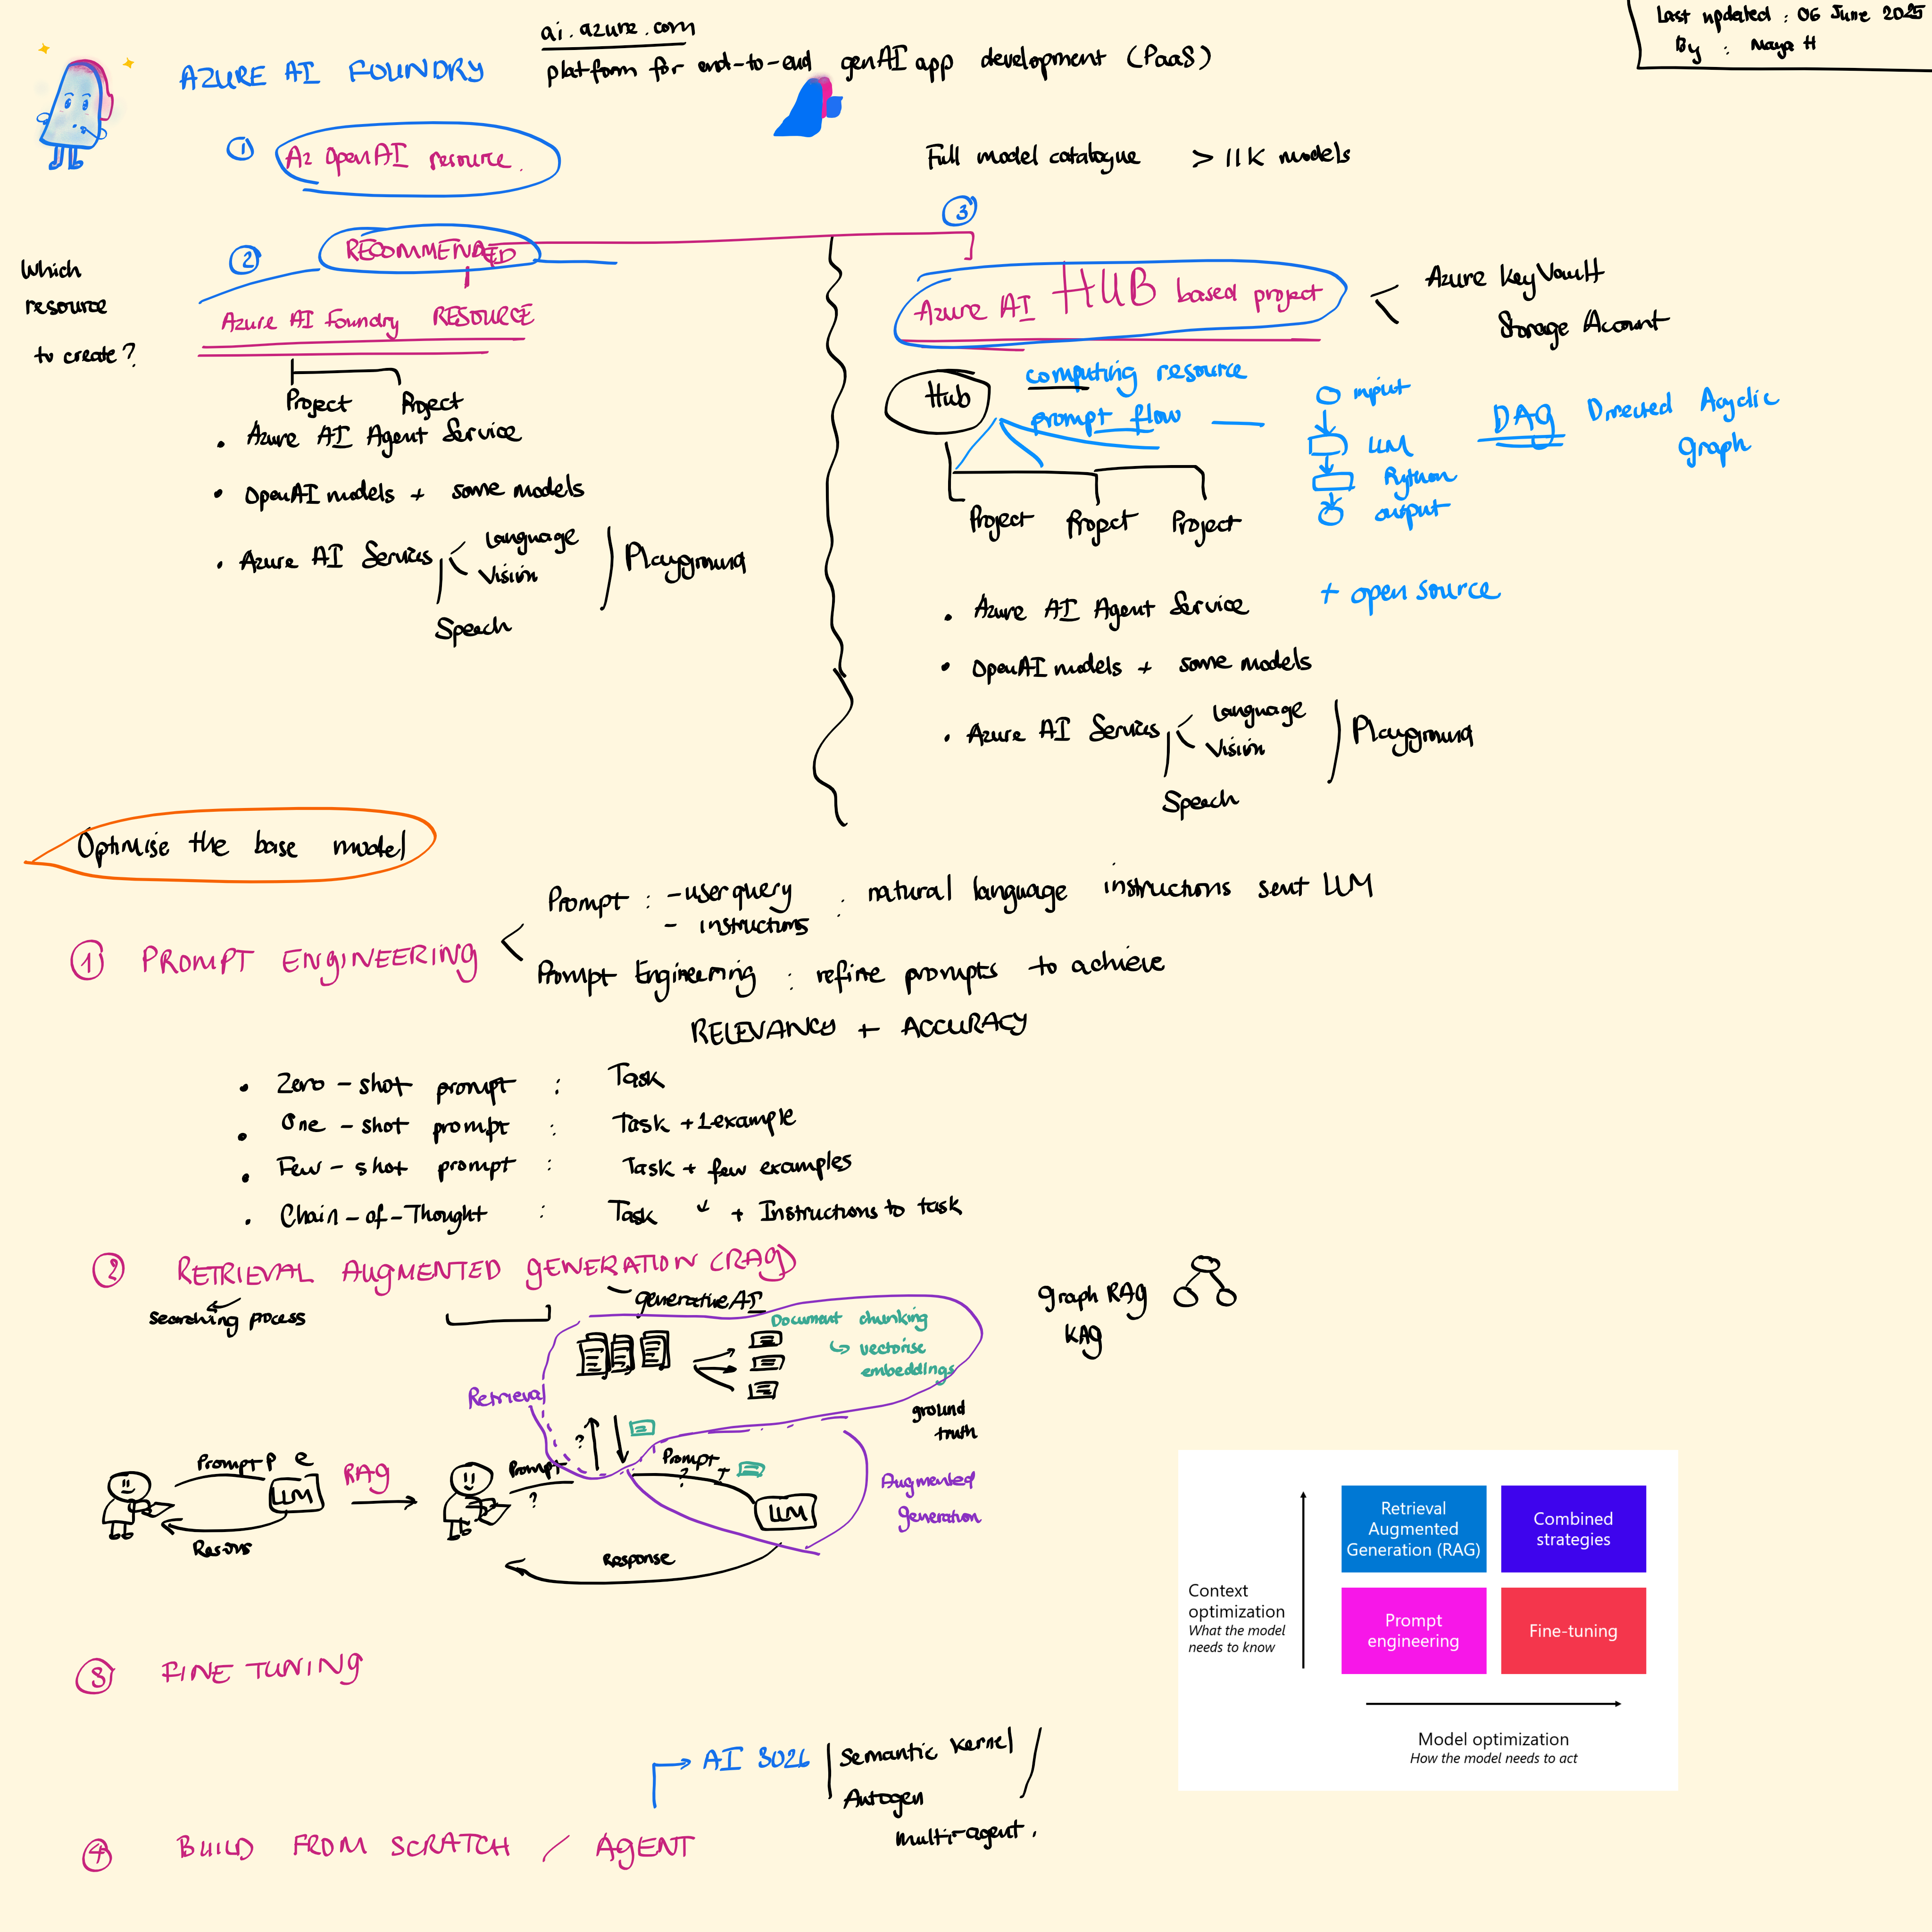 Last updated : 06 June 2025
By : Maya H
ai.azure.com
AZURE AI FOUNDRY
platform for end-to-end genAI app development (PaaS)
① Az OpenAI resource.
Full model catalogue > 11K models
Which
resource
to create?
② RECOMMENDED
Azure AI Foundry RESOURCE
Project Project
• Azure AI Agent Service
• OpenAI models + some models
• Azure AI Services
Language
Vision
Speech
Playground
③
Azure AI HUB based project
Azure KeyVault
Storage Acount
Hub
computing resource
prompt flow
input
LLM
Python
output
DAG Directed Acyclic
graph
Project Project Project
+ open source
• Azure AI Agent Service
• OpenAI models + some models
• Azure AI Services
Language
Vision
Speech
Playground
Optimise the base model
① PROMPT ENGINEERING
Prompt : - user query : natural language instructions sent LLM
- instructions
Prompt Engineering : refine prompts to achieve
RELEVANCY + ACCURACY
• Zero-shot prompt : Task
• One-shot prompt : Task + 1 example
• Few-shot prompt : Task + few examples
• Chain-of-Thought : Task + Instructions to task
② RETRIEVAL AUGMENTED GENERATION (RAG)
searching process
generative AI
Document chunking
vectorise
embeddings
Graph RAG
KAG
Retrieval
ground
truth
Prompt
LLM
RAG
Prompt
?
?
Prompt
? +
LLM
Augmented
generation
Response
Retrieval
Augmented
Generation (RAG)
Combined
strategies
Context
optimization
What the model
needs to know
Prompt
engineering
Fine-tuning
Model optimization
How the model needs to act
③ FINE TUNING
AI 3026
Semantic Kernel
Autogen
multi-agent.
④ BUILD FROM SCRATCH / AGENT